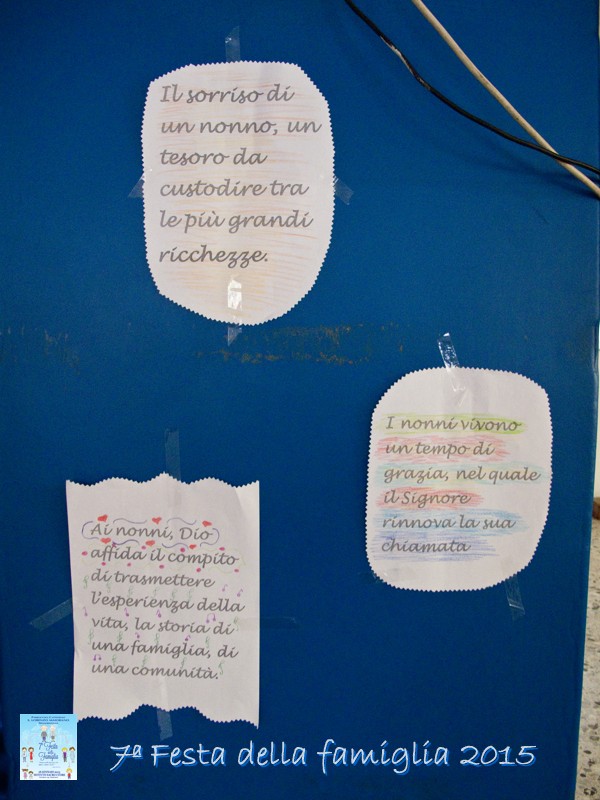 Il sorriso di
un nonno, un
tesoro da
custodire tra
le più grandi
ricchezze.
I nonni vivono
un tempo di
grazia, nel quale
il Signore
rinnova la sua
chiamata
Ai nonni, Dio
affida il compito
di trasmettere
l'esperienza della
vita, la storia di
una famiglia, di
una comunità.
7ª Festa
della
Famiglia
7ª Festa della famiglia 2015